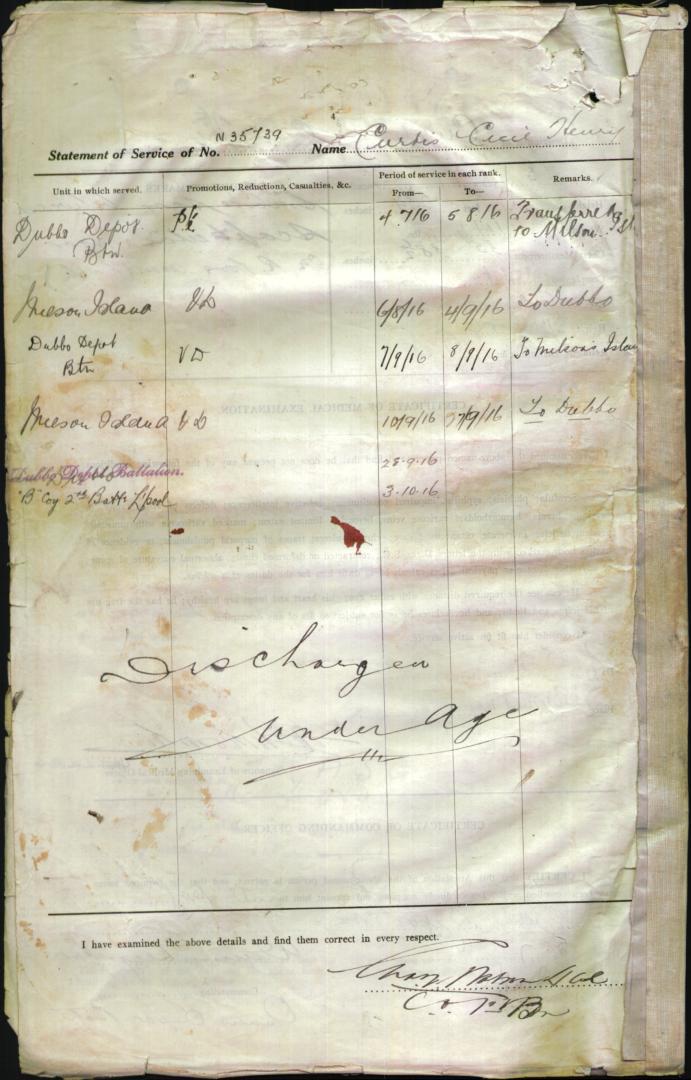 Statement of Service of No. N35739 Name Curtis Cecil Henry
Unit in which served. Promotions, Reductions, Casualties, &c. Period of service in each rank. Remarks.
From— To—
Dubbo Depot Pte 4 7/16 5 8/16 Transferred
Btn. to Milson Isl.
Milson Island VD 6/8/16 4/9/16 To Dubbo
Dubbo Depot VD 7/9/16 8/9/16 To Milsons Islan
Btn
Milson Island VD 10/9/16 27/9/16 To Dubbo
Dubbo Depot Battalion. 28.9.16
"B" Coy 2nd Battn L'pool 3.10.16
Discharged
Under Age
I have examined the above details and find them correct in every respect.
Lt Col
C.O. Bn